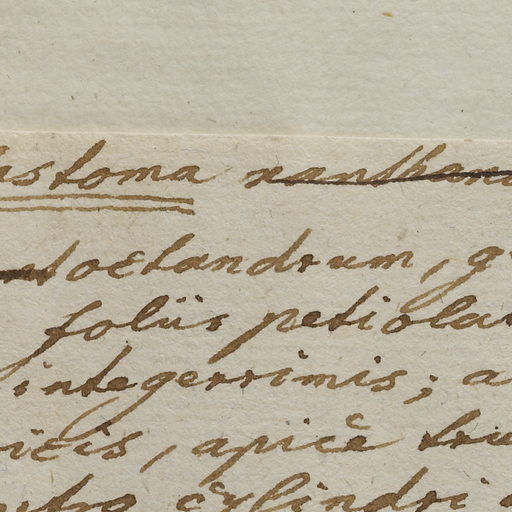 astoma xanthan
octandrum, g
foliis petiola
integerrimis; a
icis, apicè tru
cylindri